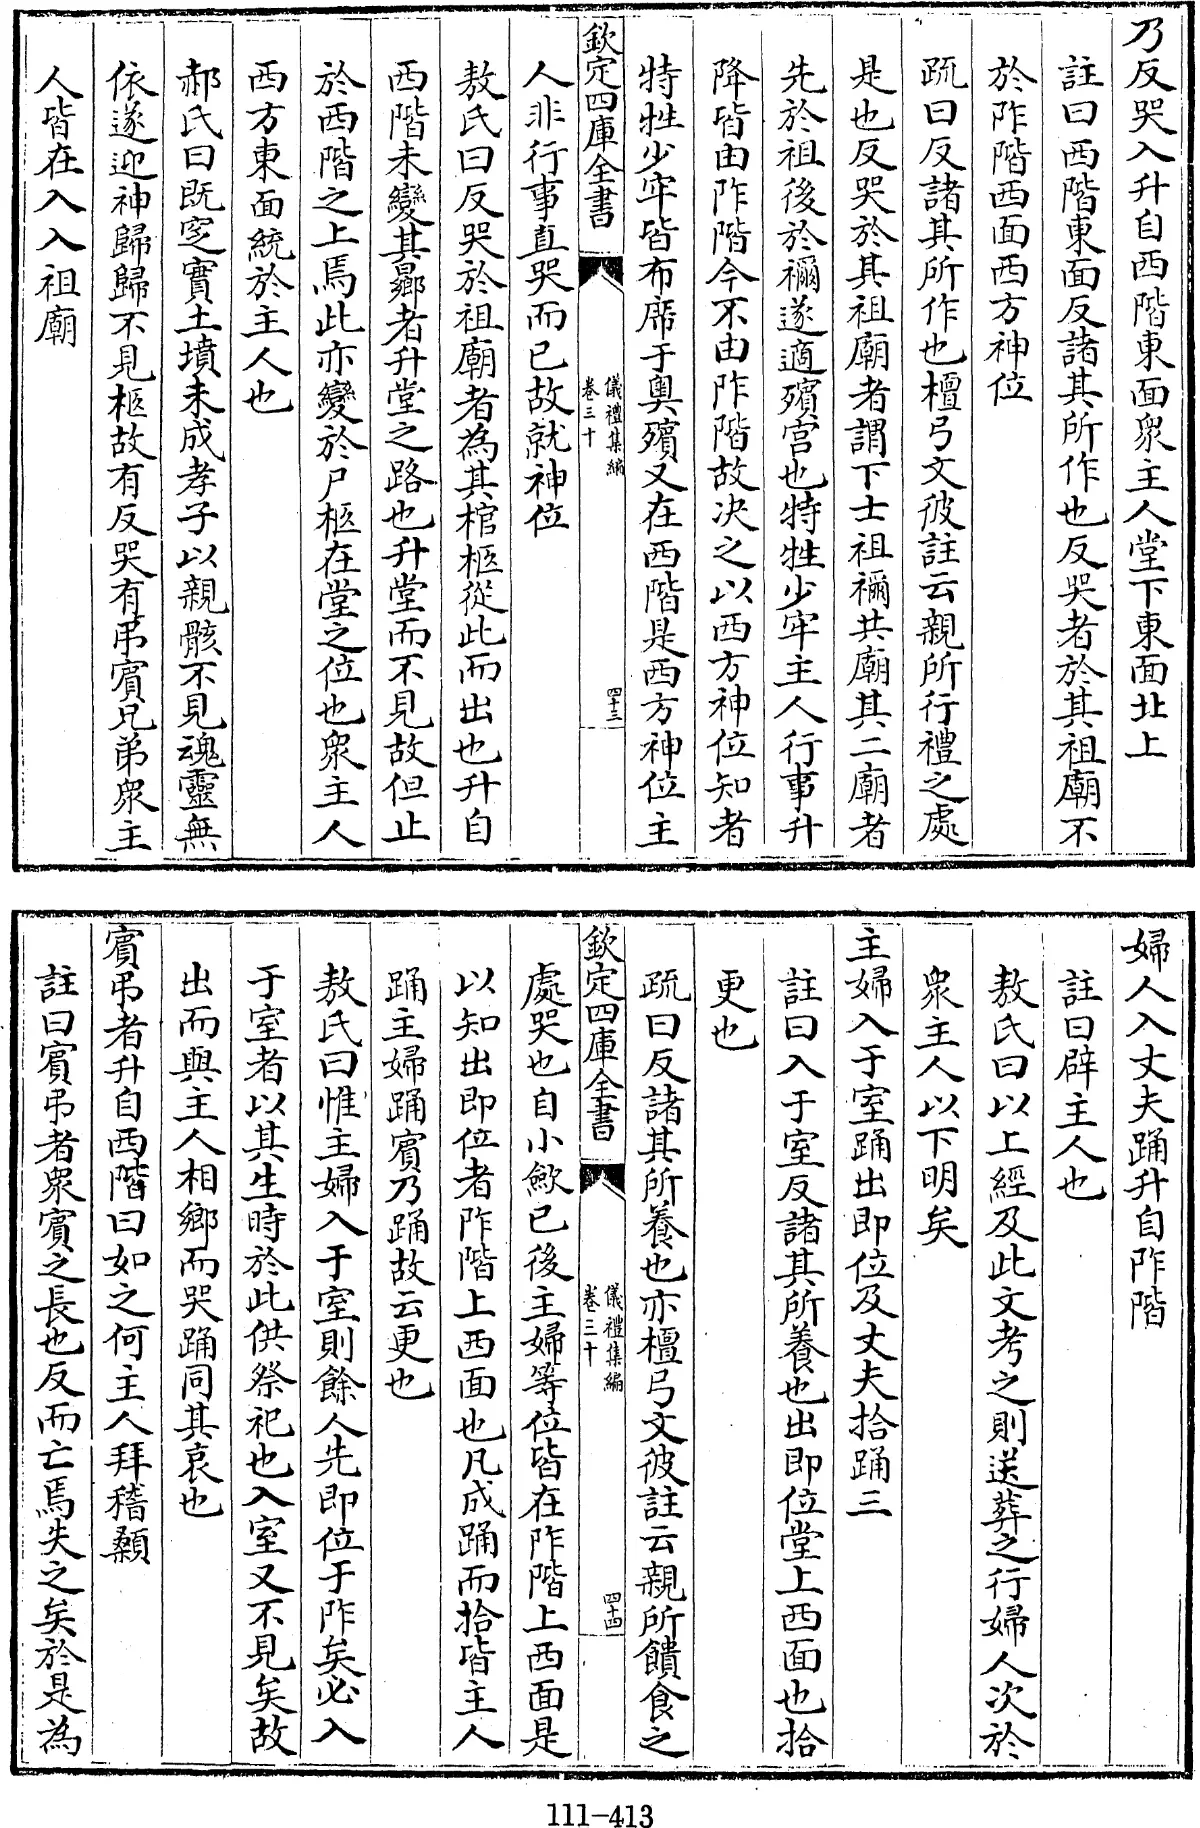 乃反哭入升自西階東面衆主人堂下東面北上
註曰西階東面反諸其所作也反哭者於其祖廟不
於阼階西面西方神位
疏曰反諸其所作也檀弓文彼註云親所行禮之處
是也反哭於其祖廟者謂下士祖禰共廟其二廟者
先於祖後於禰遂適殯宫也特牲少牢主人行事升
降皆由阼階今不由阼階故决之以西方神位知者
特牲少牢皆布席于奧殯又在西階是西方神位主
欽定四庫全書
儀禮集編
卷三十
四十三
人非行事直哭而已故就神位
敖氏曰反哭於祖廟者為其棺柩從此而出也升自
西階未變其曏者升堂之路也升堂而不見故但止
於西階之上焉此亦變於尸柩在堂之位也衆主人
西方東面統於主人也
郝氏曰既窆實土墳未成孝子以親骸不見魂靈無
依遂迎神歸歸不見柩故有反哭有弔賓兄弟衆主
人皆在入入祖廟
婦人入丈夫踊升自阼階
註曰辟主人也
敖氏曰以上經及此文考之則送葬之行婦人次於
衆主人以下明矣
主婦入于室踊出即位及丈夫拾踊三
註曰入于室反諸其所養也出即位堂上西面也拾
更也
疏曰反諸其所養也亦檀弓文彼註云親所饋食之
欽定四庫全書
儀禮集編
卷三十
四十四
處哭也自小斂已後主婦等位皆在阼階上西面是
以知出即位者阼階上西面也凡成踊而拾皆主人
踊主婦踊賓乃踊故云更也
敖氏曰惟主婦入于室則餘人先即位于阼矣必入
于室者以其生時於此供祭祀也入室又不見矣故
出而與主人相鄉而哭踊同其哀也
賓弔者升自西階曰如之何主人拜稽顙
註曰賓弔者衆賓之長也反而亡焉失之矣於是為
111-413